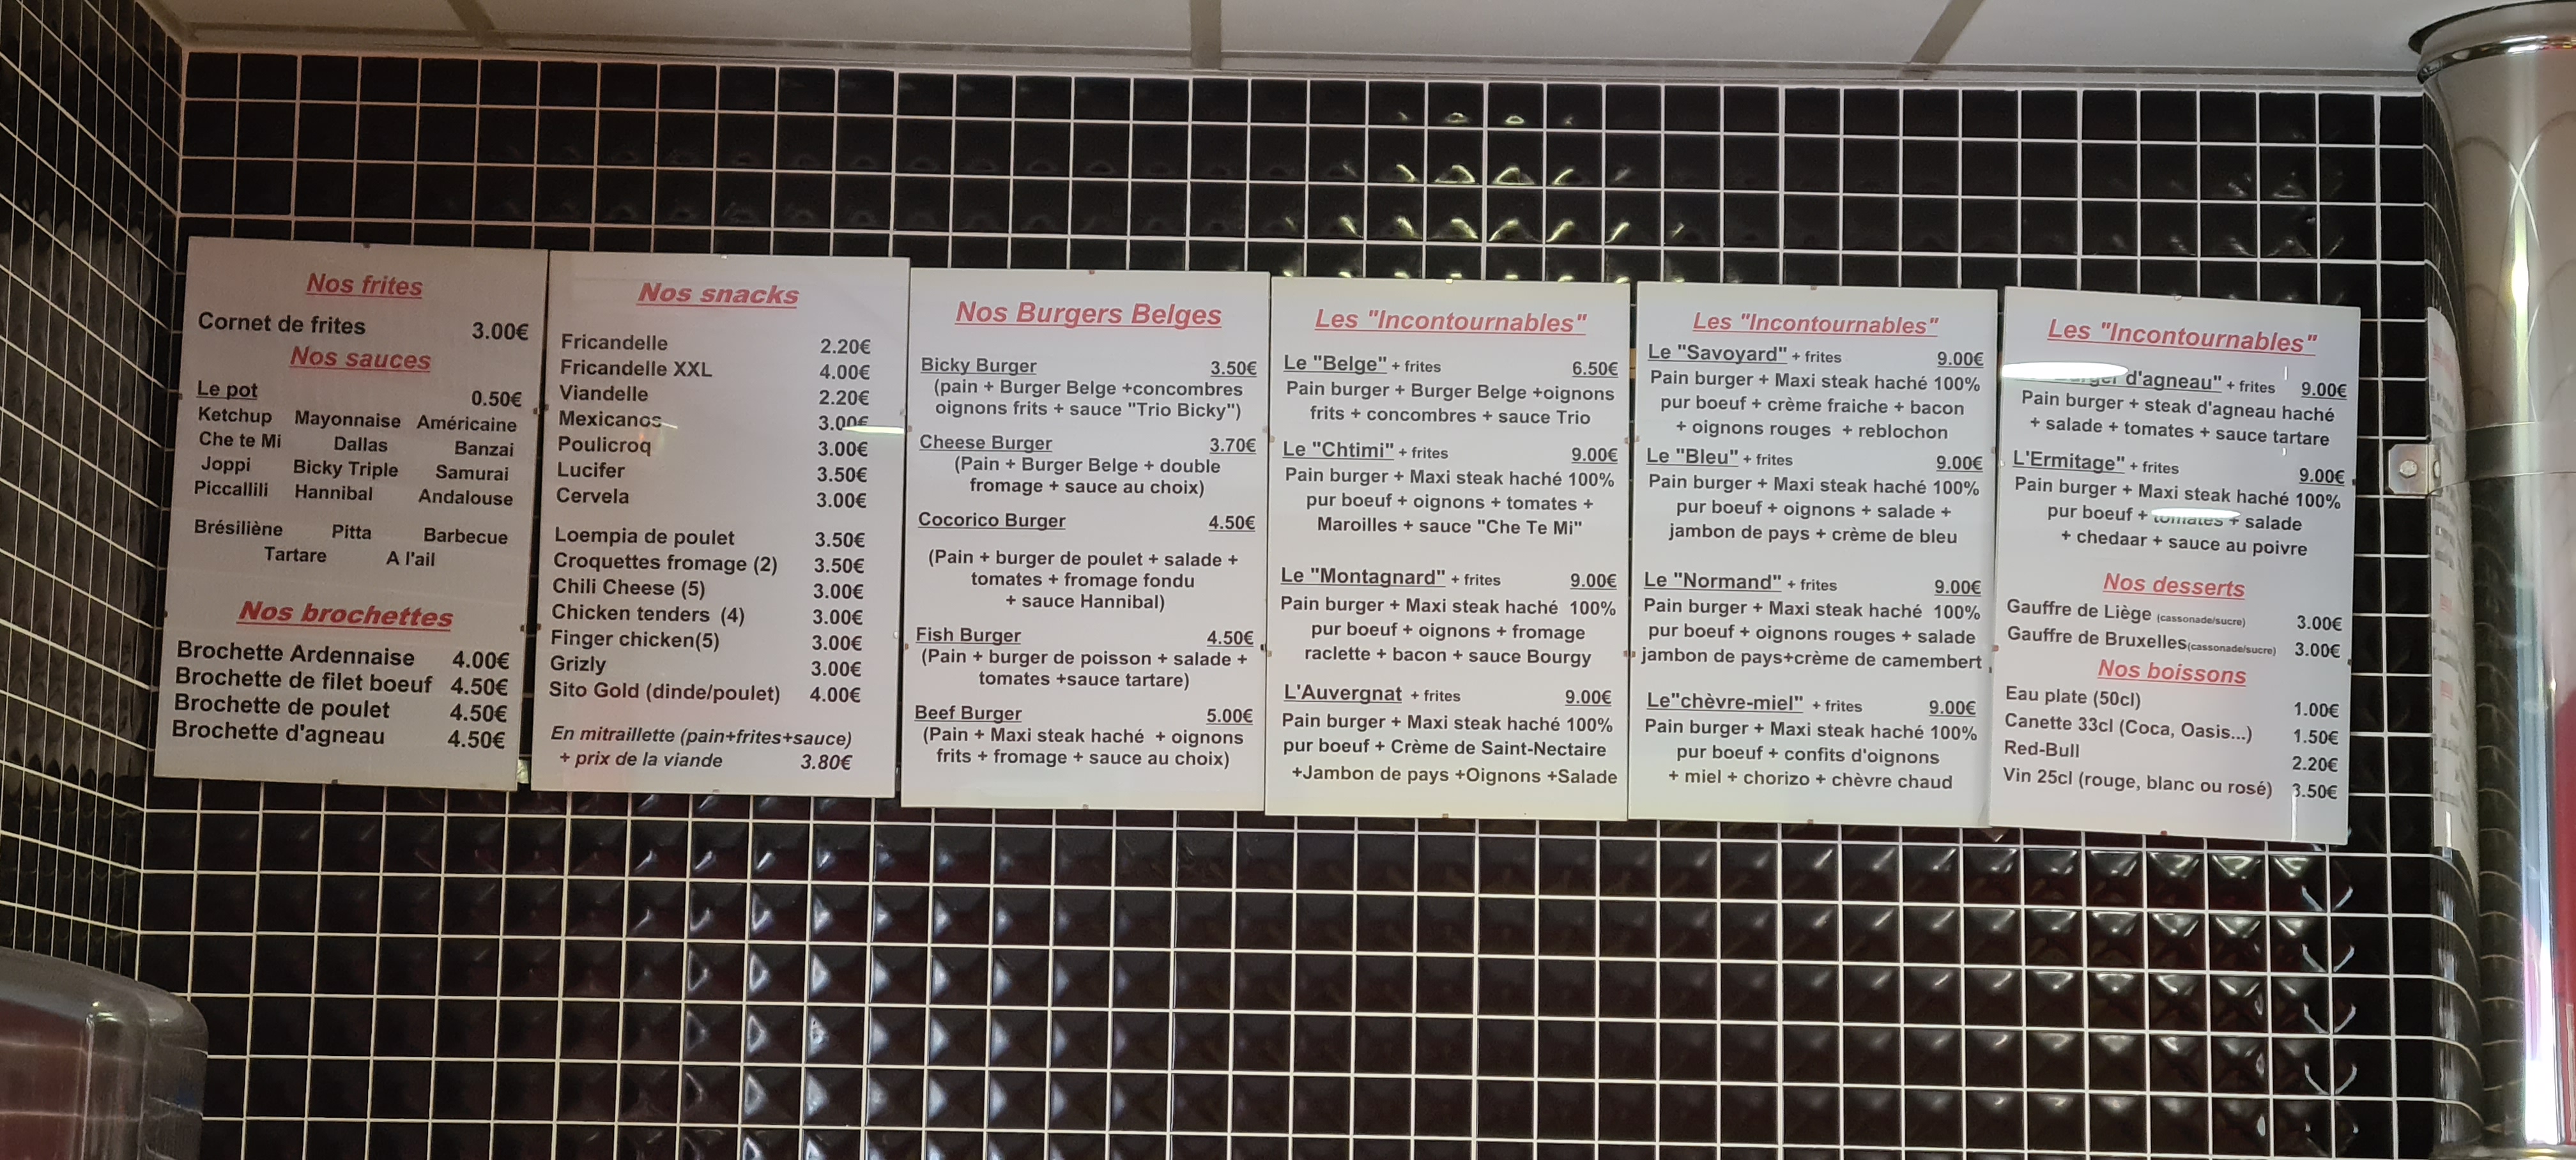 Nos frites
Cornet de frites 3.00€
Nos sauces
Le pot 0.50€
Ketchup Mayonnaise Américaine
Che te Mi Dallas Banzai
Joppi Bicky Triple Samurai
Piccallili Hannibal Andalouse
Brésiliène Pitta Barbecue
Tartare A l'ail
Nos brochettes
Brochette Ardennaise 4.00€
Brochette de filet boeuf 4.50€
Brochette de poulet 4.50€
Brochette d'agneau 4.50€
Nos snacks
Fricandelle 2.20€
Fricandelle XXL 4.00€
Viandelle 2.20€
Mexicanos 3.00€
Poulicroq 3.00€
Lucifer 3.50€
Cervela 3.00€
Loempia de poulet 3.50€
Croquettes fromage (2) 3.50€
Chili Cheese (5) 3.00€
Chicken tenders (4) 3.00€
Finger chicken(5) 3.00€
Grizly 3.00€
Sito Gold (dinde/poulet) 4.00€
En mitraillette (pain+frites+sauce)
+ prix de la viande 3.80€
Nos Burgers Belges
Bicky Burger 3.50€
(pain + Burger Belge +concombres
oignons frits + sauce "Trio Bicky")
Cheese Burger 3.70€
(Pain + Burger Belge + double
fromage + sauce au choix)
Cocorico Burger 4.50€
(Pain + burger de poulet + salade +
tomates + fromage fondu
+ sauce Hannibal)
Fish Burger 4.50€
(Pain + burger de poisson + salade +
tomates +sauce tartare)
Beef Burger 5.00€
(Pain + Maxi steak haché + oignons
frits + fromage + sauce au choix)
Les "Incontournables"
Le "Belge" + frites 6.50€
Pain burger + Burger Belge +oignons
frits + concombres + sauce Trio
Le "Chtimi" + frites 9.00€
Pain burger + Maxi steak haché 100%
pur boeuf + oignons + tomates +
Maroilles + sauce "Che Te Mi"
Le "Montagnard" + frites 9.00€
Pain burger + Maxi steak haché 100%
pur boeuf + oignons + fromage
raclette + bacon + sauce Bourgy
L'Auvergnat + frites 9.00€
Pain burger + Maxi steak haché 100%
pur boeuf + Crème de Saint-Nectaire
+Jambon de pays +Oignons +Salade
Les "Incontournables"
Le "Savoyard" + frites 9.00€
Pain burger + Maxi steak haché 100%
pur boeuf + crème fraiche + bacon
+ oignons rouges + reblochon
Le "Bleu" + frites 9.00€
Pain burger + Maxi steak haché 100%
pur boeuf + oignons + salade +
jambon de pays + crème de bleu
Le "Normand" + frites 9.00€
Pain burger + Maxi steak haché 100%
pur boeuf + oignons rouges + salade
jambon de pays+crème de camembert
Le"chèvre-miel" + frites 9.00€
Pain burger + Maxi steak haché 100%
pur boeuf + confits d'oignons
+ miel + chorizo + chèvre chaud
Les "Incontournables"
d'agneau" + frites 9.00€
Pain burger + steak d'agneau haché
+ salade + tomates + sauce tartare
L'Ermitage" + frites 9.00€
Pain burger + Maxi steak haché 100%
pur boeuf + tomates + salade
+ chedaar + sauce au poivre
Nos desserts
Gauffre de Liège (cassonade/sucre) 3.00€
Gauffre de Bruxelles(cassonade/sucre) 3.00€
Nos boissons
Eau plate (50cl) 1.00€
Canette 33cl (Coca, Oasis...) 1.50€
Red-Bull 2.20€
Vin 25cl (rouge, blanc ou rosé) 3.50€